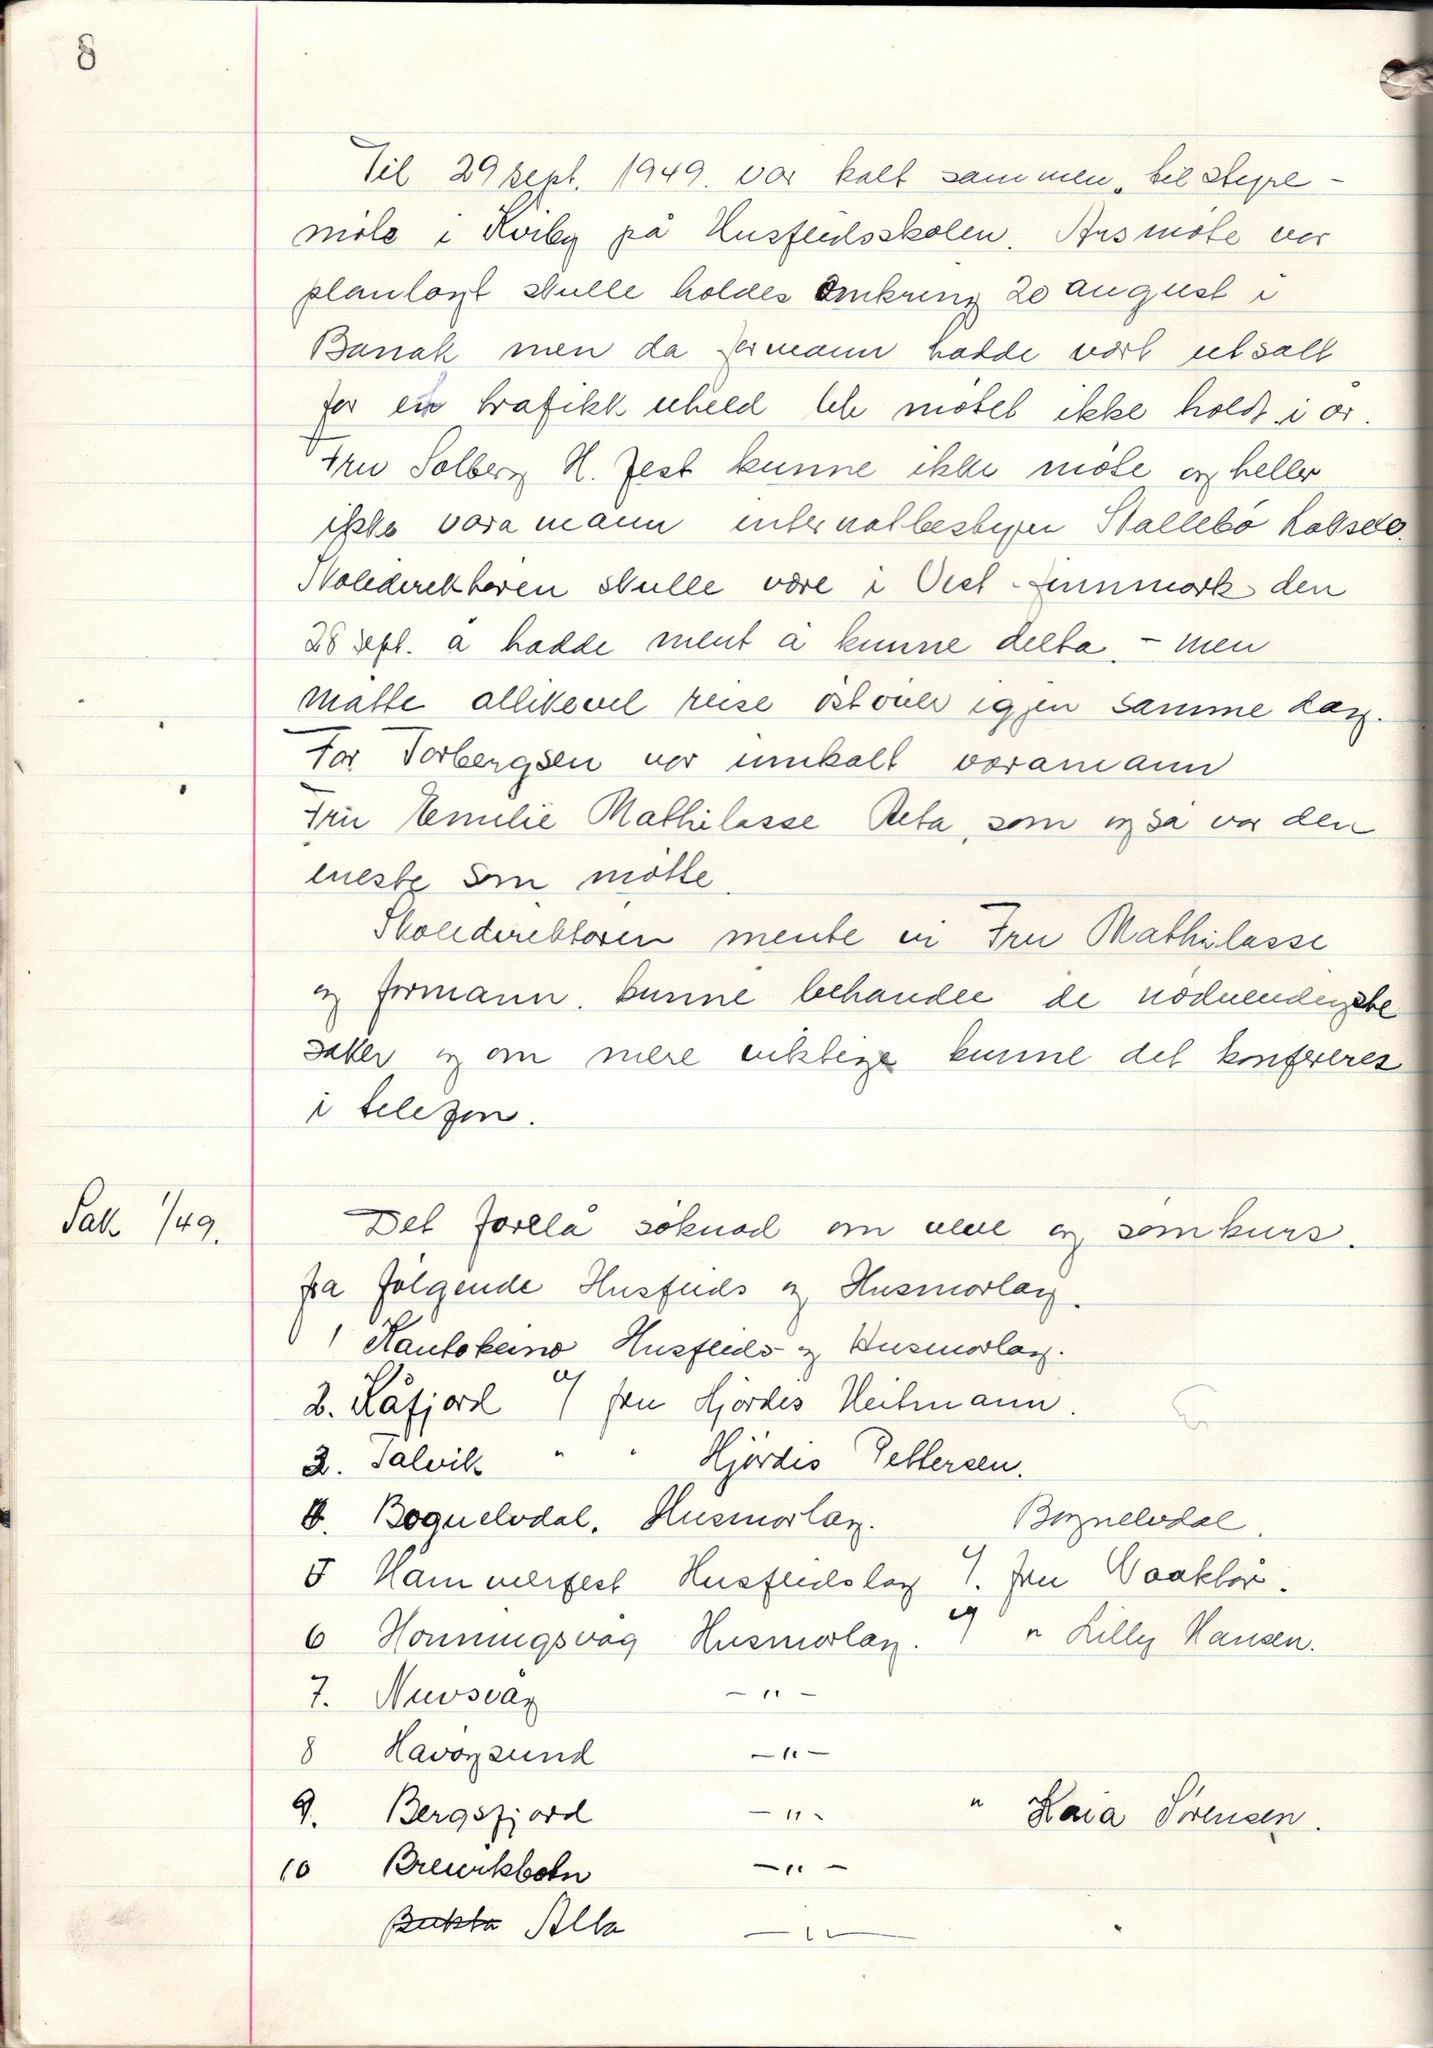 8
Til 29 sept. 1949. var kalt sammen, til styre-
möte i Kviby på Husflidsskolen. Årsmöte var
planlagt skulle holdes omkring 20 august i
Banak men da formann hadde vært utsatt
for en trafikk uheld ble mötet ikke holdt i år.
Fru Solberg H.fest kunne ikke möte og heller
ikke varamann internatbestyrer Stallebö
Skoledirektören skulle være i Vest-Finnmark den
28 sept. å hadde ment å kunne delta, - men
måtte allikevel reise östover igjen samme dag.
For Torbergsen var innkalt varamann
Fru Emilie Mathilasse Alta, som også var den
eneste som mötte.
Skoledirektören mente vi Fru Mathilasse
og formann. kunne behandle de nödvendigste
saker og om mere viktige kunne det konfereres
i telefon.
Sak 1/49.
Det forelå söknad om veve og sömkurs.
fra fölgende Husflids og Husmorlag.
1 Kautokeino Husflids og Husmorlag.
2. Kåfjord v/ fru Hjördis Heitmann.
3. Talvik " " Hjördis Pettersen.
4. Bognelvdal. Husmorlag. Bognelvdal.
5 Hammerfest Husflidslag v/. fru Waaktör.
6 Honningsvåg Husmorlag. v/ " Lilly Hansen.
7. Nuvsvåg - " -
8 Havöysund - " -
9. Bergsfjord - " - " Kaia Sörensen.
10 Breivikbotn - " -
Bukta Alta - " -